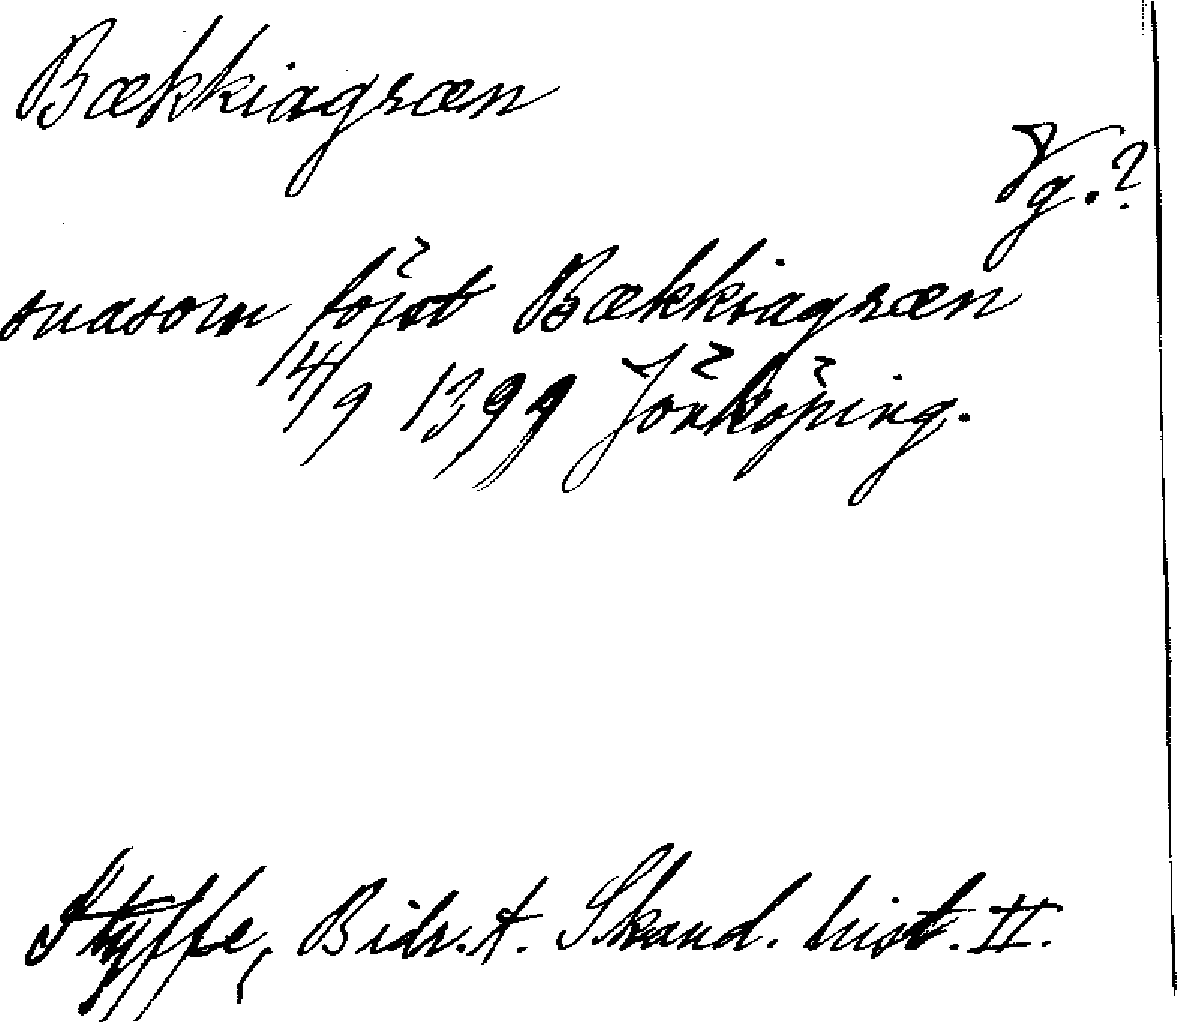 Bækkiagræn
Vg.?
suasom först Bækkiagræn
14/9 1399 Jönköping.
Styffe, Bidr. t. Skand. hist. II.